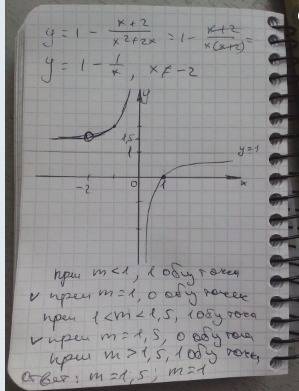 y = 1 - \frac{x+2}{x^2+2x} = 1 - \frac{x+2}{x(x+2)} =
y = 1 - \frac{1}{x} , x ≠ -2
y
1,5
1
y=1
-2
0
1
x
при m < 1, 1 общ точка
✓ при m = 1, 0 общ точек
при 1 < m < 1,5, 1 общ точка
✓ при m = 1,5, 0 общ точ
при m > 1,5, 1 общ точка
Ответ: m = 1,5; m = 1